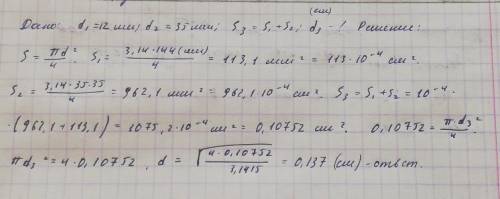 (см)
Дано: d₁=12 мм; d₂=35 мм; S₃=S₁+S₂; d₃-! Решение:
S=πd²/4. S₁=3,14·144(мм)/4=113,1 мм²=113·10⁻⁴ см².
S₂=3,14·35·35/4=962,1 мм²=962,1·10⁻⁴ см². S₃=S₁+S₂=10⁻⁴·
·(962,1+113,1)=1075,2·10⁻⁴ см²=0,10752 см². 0,10752=π·d₃²/4.
πd₃²=4·0,10752, d=√(4·0,10752/3,1415)=0,137 (см)-ответ.